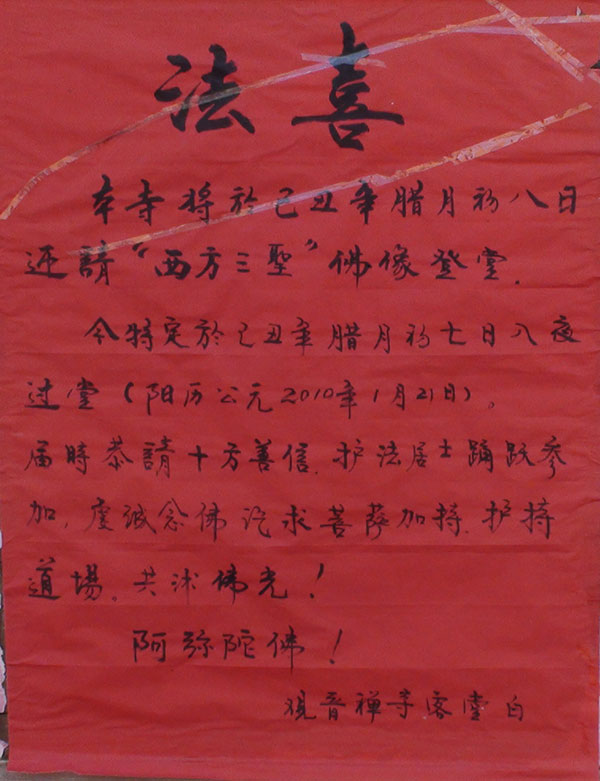 法喜
本寺将於己丑年腊月初八日
迎請“西方三聖”佛像登堂.
今特定於己丑年腊月初七日入夜
过堂(阳历公元2010年1月21日)。
届時恭請十方善信.护法居士踊跃參
加,虔誠念佛讫求菩萨加持.护持
道場。共沐佛光!
阿弥陀佛!
观音禅寺客堂 白